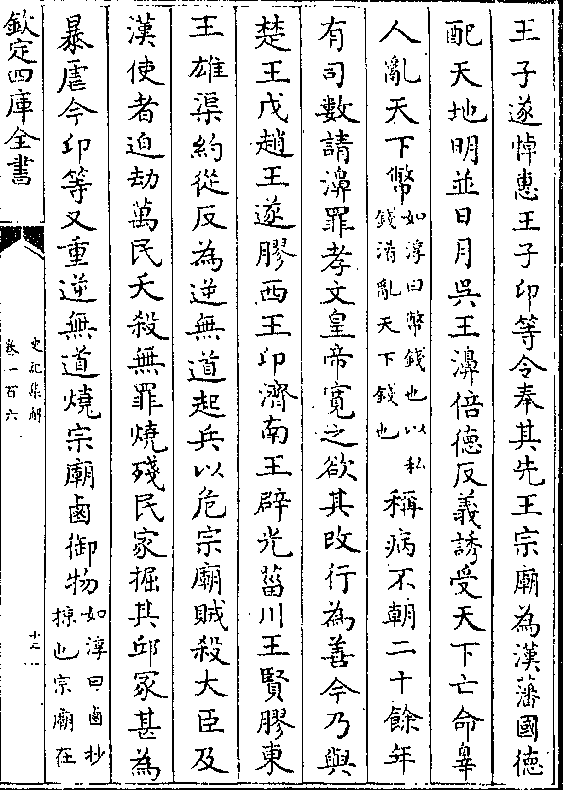 王子遂悼惠王子卬等令奉其先王宗廟為漢藩國德
配天地明並日月吳王濞倍德反義誘受天下亡命辠
人亂天下幣如淳曰幣錢也以私錢淆亂天下錢也稱病不朝二十餘年
有司數請濞罪孝文皇帝寛之欲其改行為善今乃與
楚王戊趙王遂膠西王卬濟南王辟光菑川王賢膠東
王雄渠約從反為逆無道起兵以危宗廟賊殺大臣及
漢使者迫劫萬民夭殺無罪燒殘民家掘其邱冢甚為
暴虐今卬等又重逆無道燒宗廟鹵御物如淳曰鹵抄掠也宗廟在
欽定四庫全書
史記集解
卷一百六